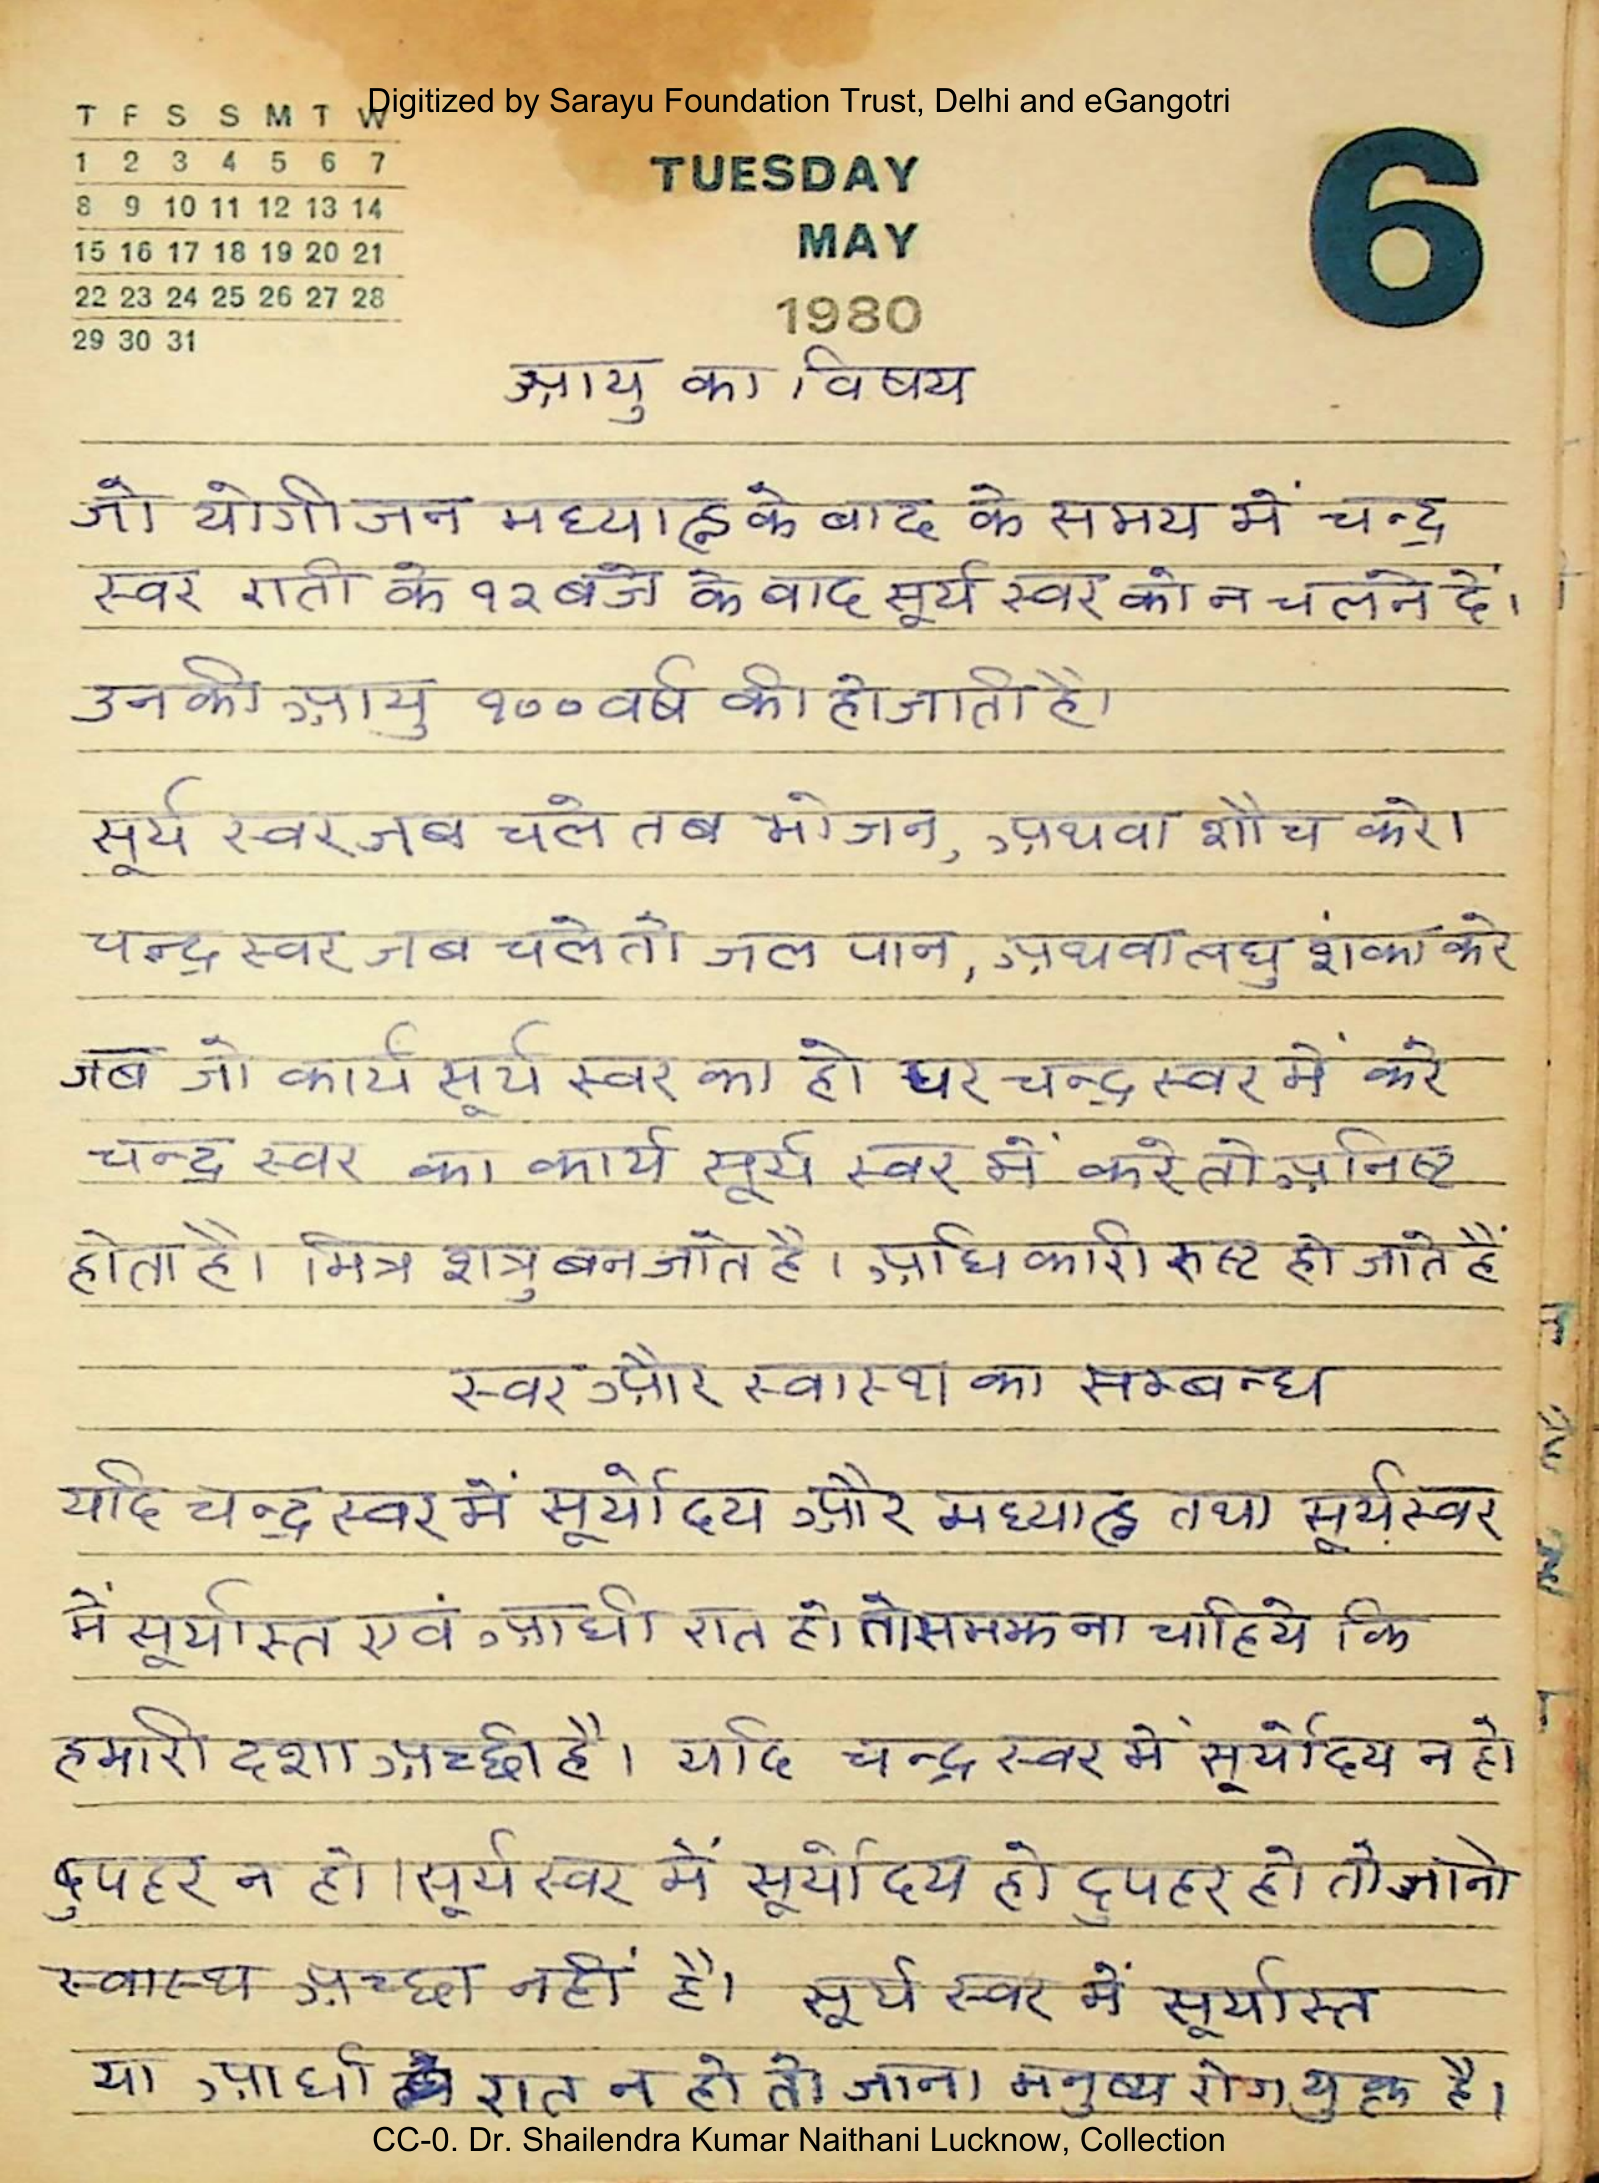 Digitized by Sarayu Foundation Trust, Delhi and eGangotri
T F S S M T W
1 2 3 4 5 6 7
8 9 10 11 12 13 14
15 16 17 18 19 20 21
22 23 24 25 26 27 28
29 30 31
TUESDAY
MAY
1980
6
आयु का विषय
जो योगीजन मध्याह्न के बाद के समय में चन्द्र
स्वर राती के १२ बजे के बाद सूर्य स्वर को न चलने दें।
उनकी आयु १०० वर्ष की हो जाती है।
सूर्य स्वर जब चले तब भोजन, अथवा शौच करे।
चन्द्र स्वर जब चले तो जल पान, अथवा लघु शंका करे
जब जो कार्य सूर्य स्वर का हो पर चन्द्र स्वर में करे
चन्द्र स्वर का कार्य सूर्य स्वर में करे तो अनिष्ट
होता है। मित्र शत्रु बन जाते है। अधिकारी रुष्ट हो जाते हैं
स्वर और स्वास्थ का सम्बन्ध
यदि चन्द्र स्वर में सूर्योदय और मध्याह्न तथा सूर्य स्वर
में सूर्यास्त एवं आधी रात हो तो समझना चाहिये कि
हमारी दशा अच्छी है। यदि चन्द्र स्वर में सूर्योदय न हो
दुपहर न हो। सूर्य स्वर में सूर्योदय हो दुपहर हो तो जानो
स्वास्थ अच्छा नहीं है। सूर्य स्वर में सूर्यास्त
या आधी रात न हो तो जाना मनुष्य रोग युक्त है।
CC-0. Dr. Shailendra Kumar Naithani Lucknow, Collection